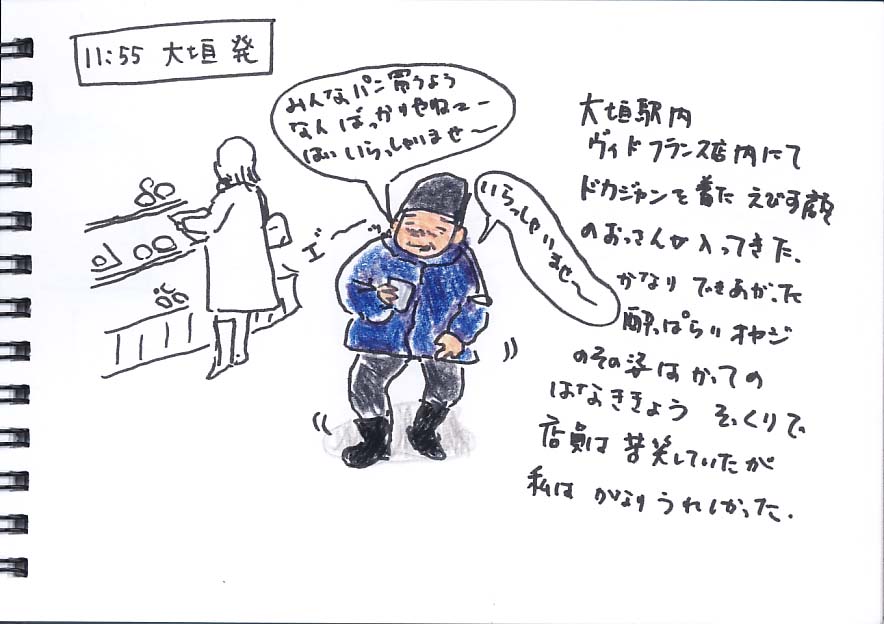 11:55 大垣 発
みんなパン買うよう
なんばっかりやねぇー
はい いらっしゃいませ〜
いらっしゃいませ〜
エ
大垣駅内
ヴィドフランス店内にて
ドカジャンを着た えびす顔
のおっさんが入ってきた、
かなり できあがった
酔っぱらい オヤジ
のその姿はかつての
はなききょう そっくりで
店員は 苦笑していたが
私は かなり うれしかった.